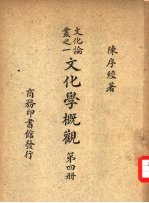 陳序經著
文化論叢之一
文化學概觀 第四册
商務印書館發行